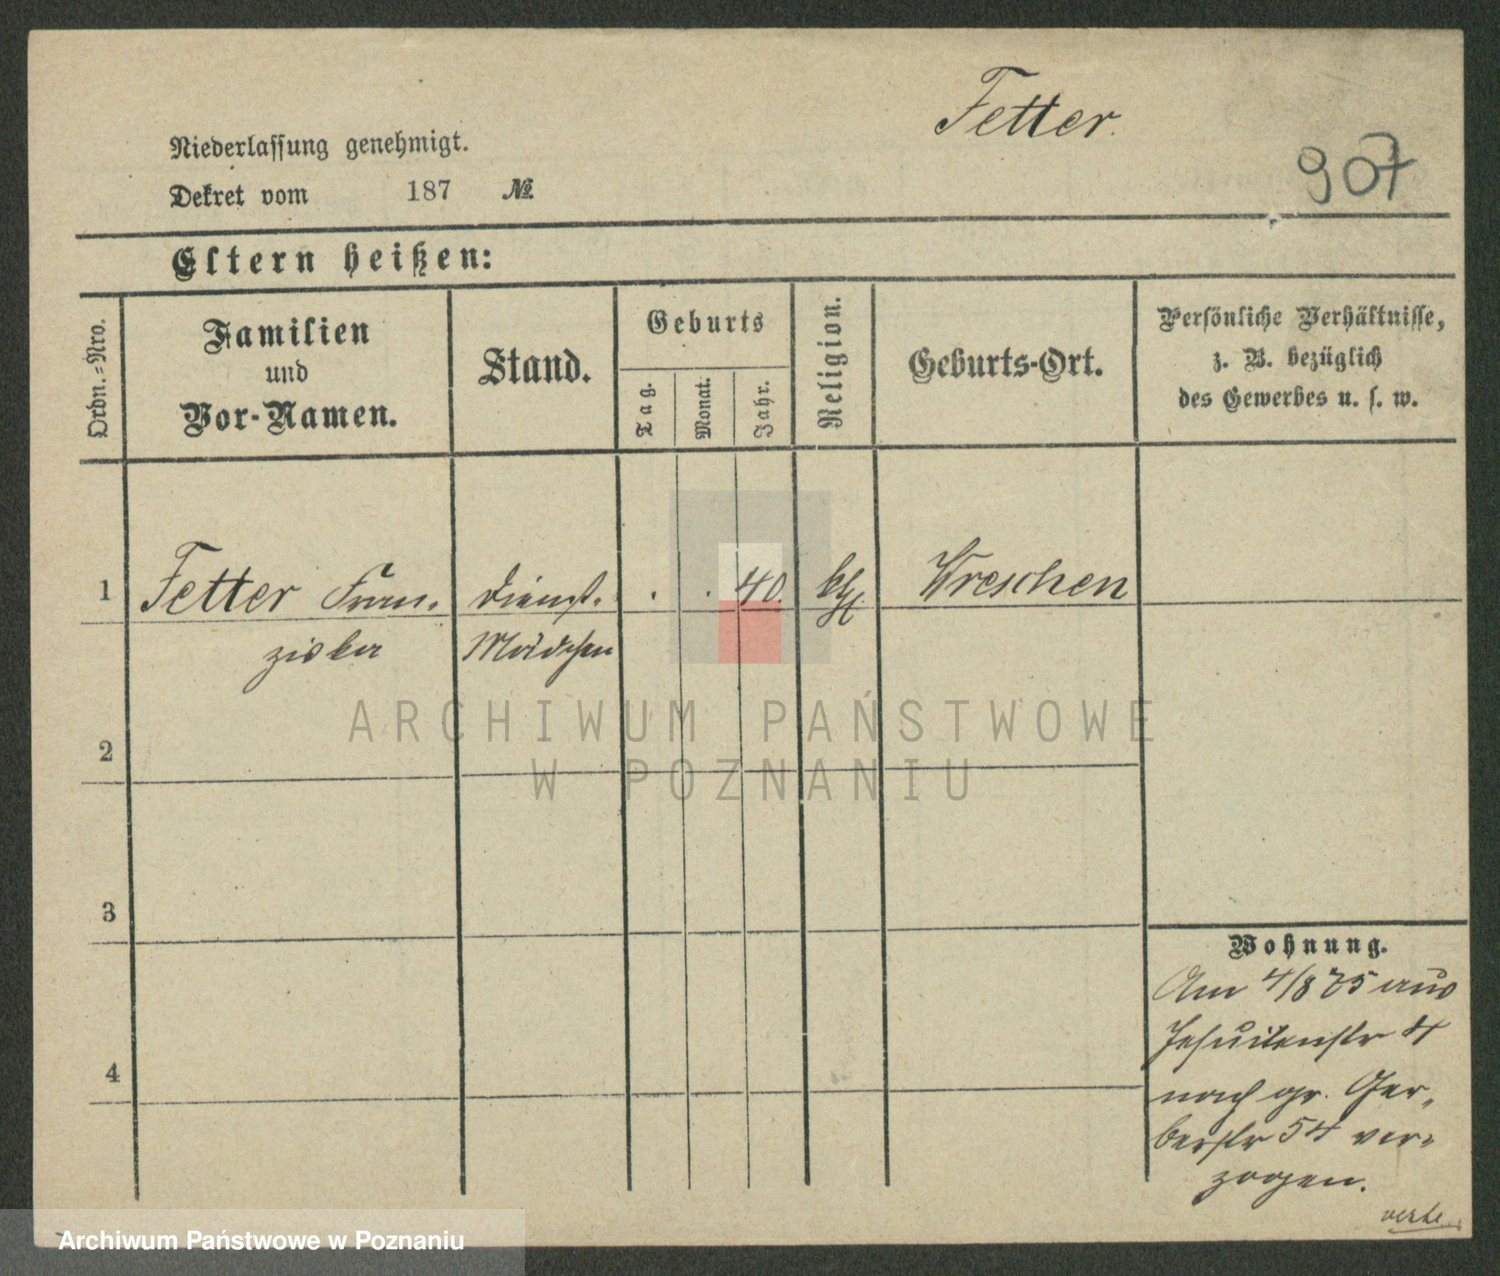 Fetter.
907
Niederlassung genehmigt.
Dekret vom 187 №
Eltern heißen:
Ordn.=Nro.
Familien
und
Vor-Namen.
Stand.
Geburts
Tag.
Monat.
Jahr.
Religion.
Geburts-Ort.
Persönliche Verhältnisse,
z. B. bezüglich
des Gewerbes u. s. w.
1 Fetter Fran- Dienst- . . 40. kth Wreschen
ziska Mädchen
2
3
4
Wohnung.
Am 4/8 75 aus
Jesuitenstr 4
nach gr. Ger-
berstr 54 ver-
zogen.
ARCHIWUM PAŃSTWOWE
W POZNANIU
Archiwum Państwowe w Poznaniu